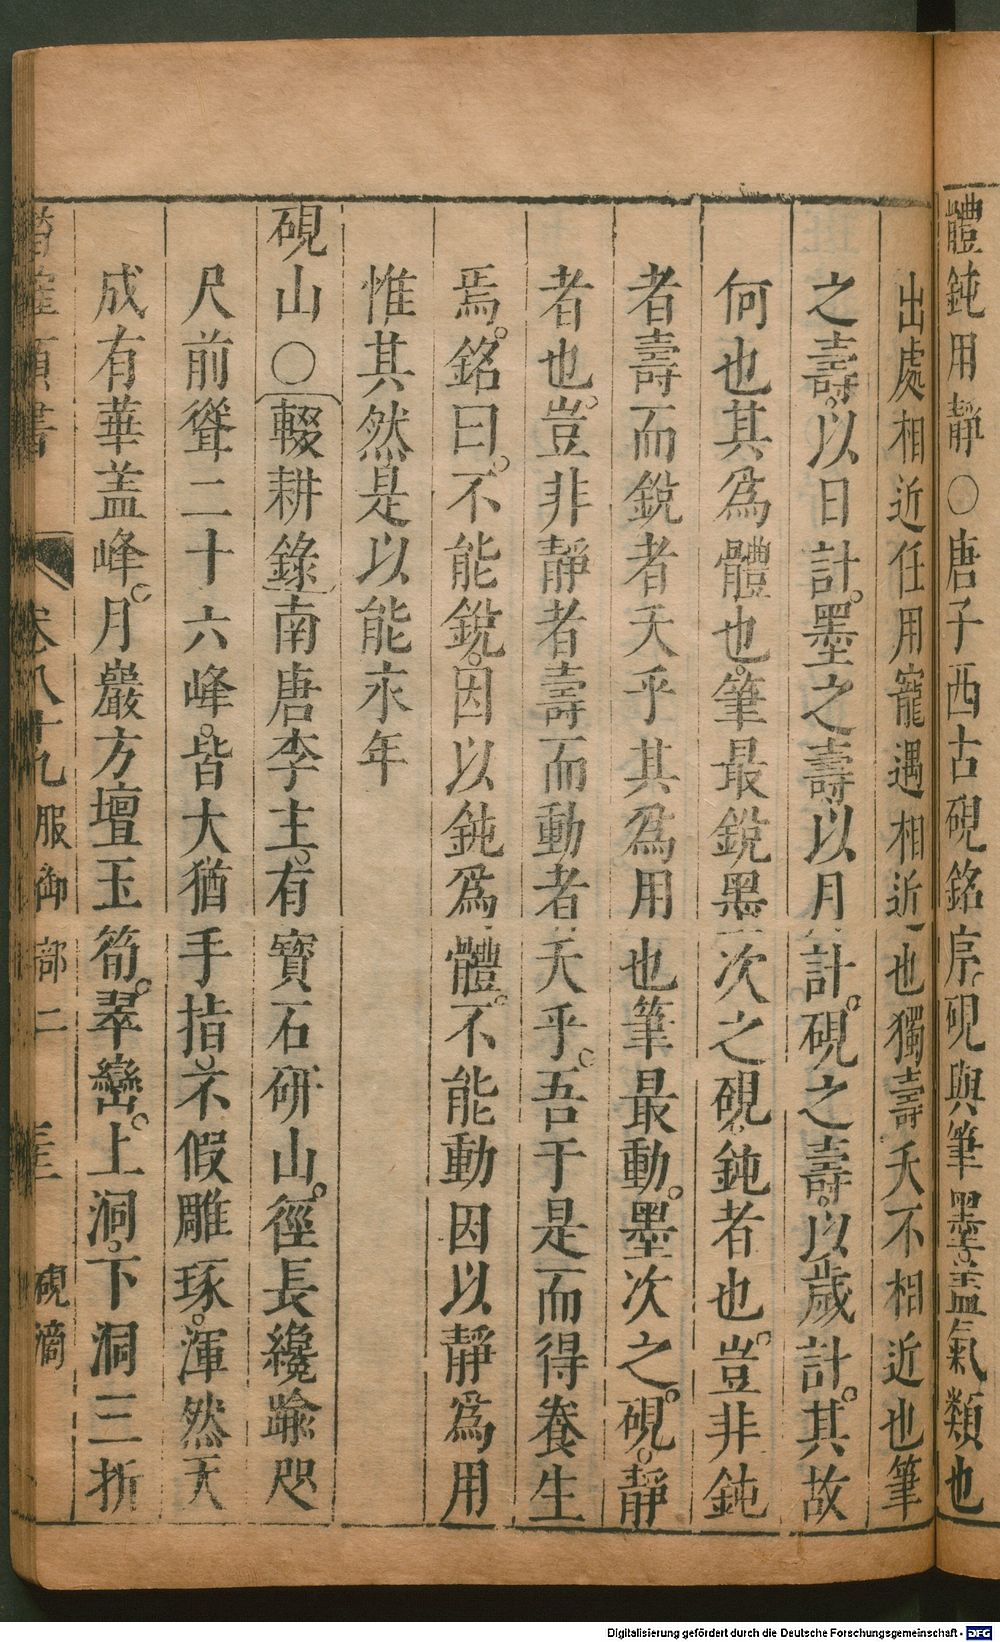 體鈍用靜○唐子西古硯銘序硯與筆墨蓋氣類也
出處相近任用寵遇相近也獨壽夭不相近也筆
之壽以日計墨之壽以月計硯之壽以歲計其故
何也其爲體也筆最銳墨次之硯鈍者也豈非鈍
者壽而銳者夭乎其爲用也筆最動墨次之硯靜
者也豈非靜者壽而動者夭乎吾于是而得養生
焉銘曰不能銳因以鈍爲體不能動因以靜爲用
惟其然是以能永年
硯山○輟耕錄南唐李主有寶石研山徑長纔踰咫
尺前聳三十六峰皆大猶手指不假雕琢渾然天
成有華盖峰月巖方壇玉筍翠巒上洞下洞三折
類書 卷八十九 服御部二 硯滴
Digitalisierung gefördert durch die Deutsche Forschungsgemeinschaft - DFG